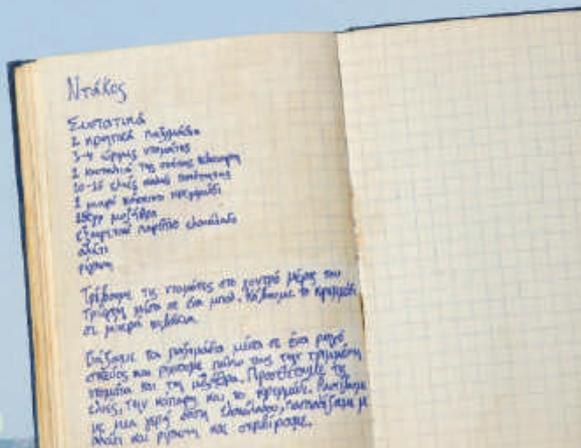 Ντάκος
Συστατικά
2 κρητικά παξιμάδια
3-4 ώριμες ντομάτες
1 κουταλιά της σούπας κάπαρη
10-15 ελιές καλής ποιότητας
1 μικρό κόκκινο κρεμμύδι
μυζήθρα
εξαιρετικό παρθένο ελαιόλαδο
αλάτι
ρίγανη
Τρίβουμε τις ντομάτες στο χοντρό μέρος του
τρίφτη μέσα σε ένα μπολ. Κόβουμε το κρεμμύδι
σε μικρά κυβάκια.
Βάζουμε τα παξιμάδια μέσα σε ένα ρηχό
σκεύος και ρίχνουμε πάνω τους την τριμμένη
ντομάτα και τη μυζήθρα. Προσθέτουμε τις
ελιές, την κάπαρη και το κρεμμύδι. Ραντίζουμε
με μια γερή δόση ελαιόλαδου, πασπαλίζουμε με
αλάτι και ρίγανη και σερβίρουμε.